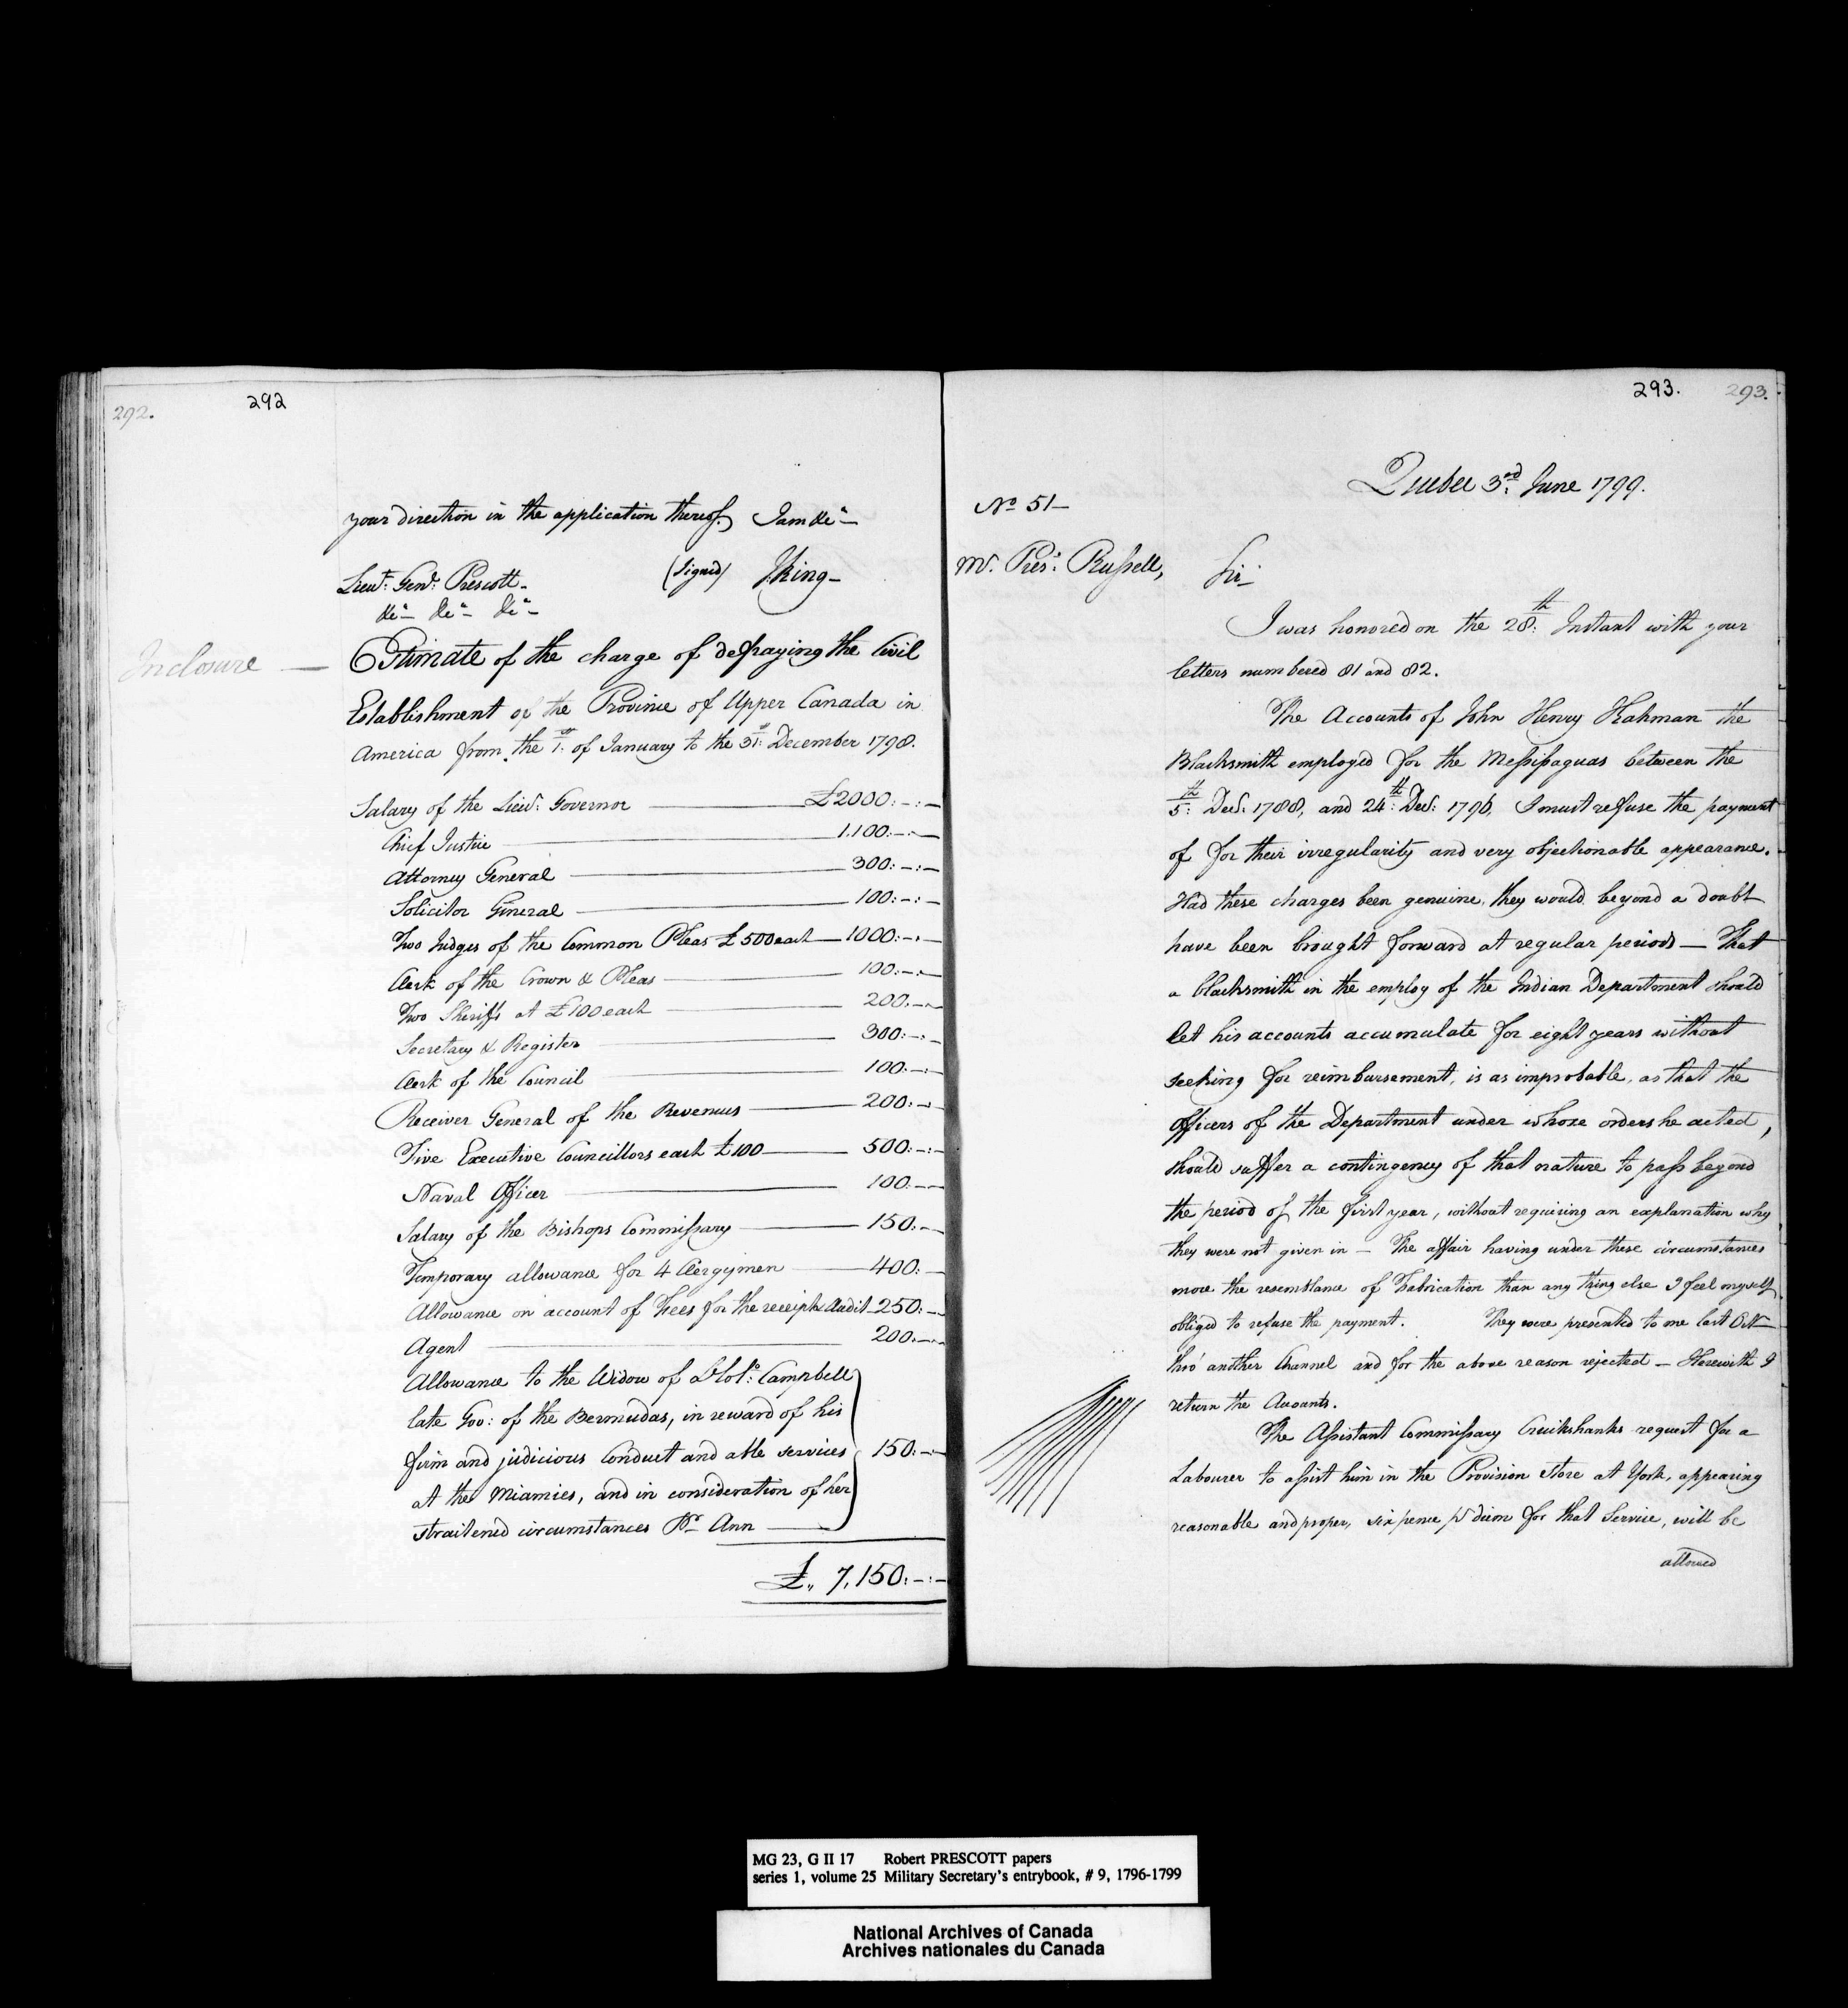 292.
292
your direction in the application thereof. I am &cª
Lieuᵗ: Genˡ: Prescott
(Signed) J King
&cª &cª &cª
Inclosure
Estimate of the charge of defraying the Civil
Establishment of the Province of Upper Canada in
America from the 1ˢᵗ: of January to the 31ˢᵗ: December 1798.
Salary of the Lieuᵗ: Governor £2000:-:-
Chief Justice 1,100:-:-
Attorney General 300:-:-
Solicitor General 100:-:-
Two Judges of the Common Pleas £500 each 1000:-:-
Clerk of the Crown & Pleas 100:-:-
Two Sheriffs at £100 each 200:-:-
Secretary & Register 300:-:-
Clerk of the Council 100:-:-
Receiver General of the Revenues 200:-
Five Executive Councillors each £100 500:-:-
Naval Officer 100:-:-
Salary of the Bishops Commissary 150:-
Temporary allowance for 4 Clergymen 400:-
Allowance on account of Fees for the receipt & Audit 250:-
Agent 200:-:-
Allowance to the Widow of Lᵗ Colº: Campbell
late Gov: of the Bermudas, in reward of his
firm and judicious Conduct and able services 150:-:-
at the Miamies, and in consideration of her
straitened circumstances Pʳ Ann
£,, 7,150:-:-
293.
293.
Quebec 3ʳᵈ: June 1799.
Nº 51
Mʳ. Presᵗ: Russell,
Sir
I was honored on the 28ᵗʰ: Instant with your
letters numbered 81 and 82.
The Accounts of John Henry Kahman the
Blacksmith employed for the Messissaguas between the
5ᵗʰ: Decʳ: 1788, and 24ᵗʰ: Decʳ: 1796, I must refuse the payment
of for their irregularity and very objectionable appearance.
Had these charges been genuine, they would beyond a doubt
have been brought forward at regular periods — That
a blacksmith in the employ of the Indian Department should
let his accounts accumulate for eight years without
seeking for reimbursement, is as improbable, as that the
Officers of the Department under whose orders he acted,
should suffer a contingency of that nature to pass beyond
the period of the first year, without requiring an explanation why
they were not given in — The affair having under these circumstances
more the resemblance of Fabrication than any thing else I feel myself
obliged to refuse the payment. They were presented to me last Octʳ
thro' another Channel and for the above reason rejected — Herewith I
return the Accounts.
The Assistant Commissary Cruikshanks request for a
Labourer to assist him in the Provision Store at York, appearing
reasonable and proper, six pence pʳ diem for that Service, will be
allowed
MG 23, G II 17 Robert PRESCOTT papers
series 1, volume 25 Military Secretary's entrybook, # 9, 1796-1799
National Archives of Canada
Archives nationales du Canada